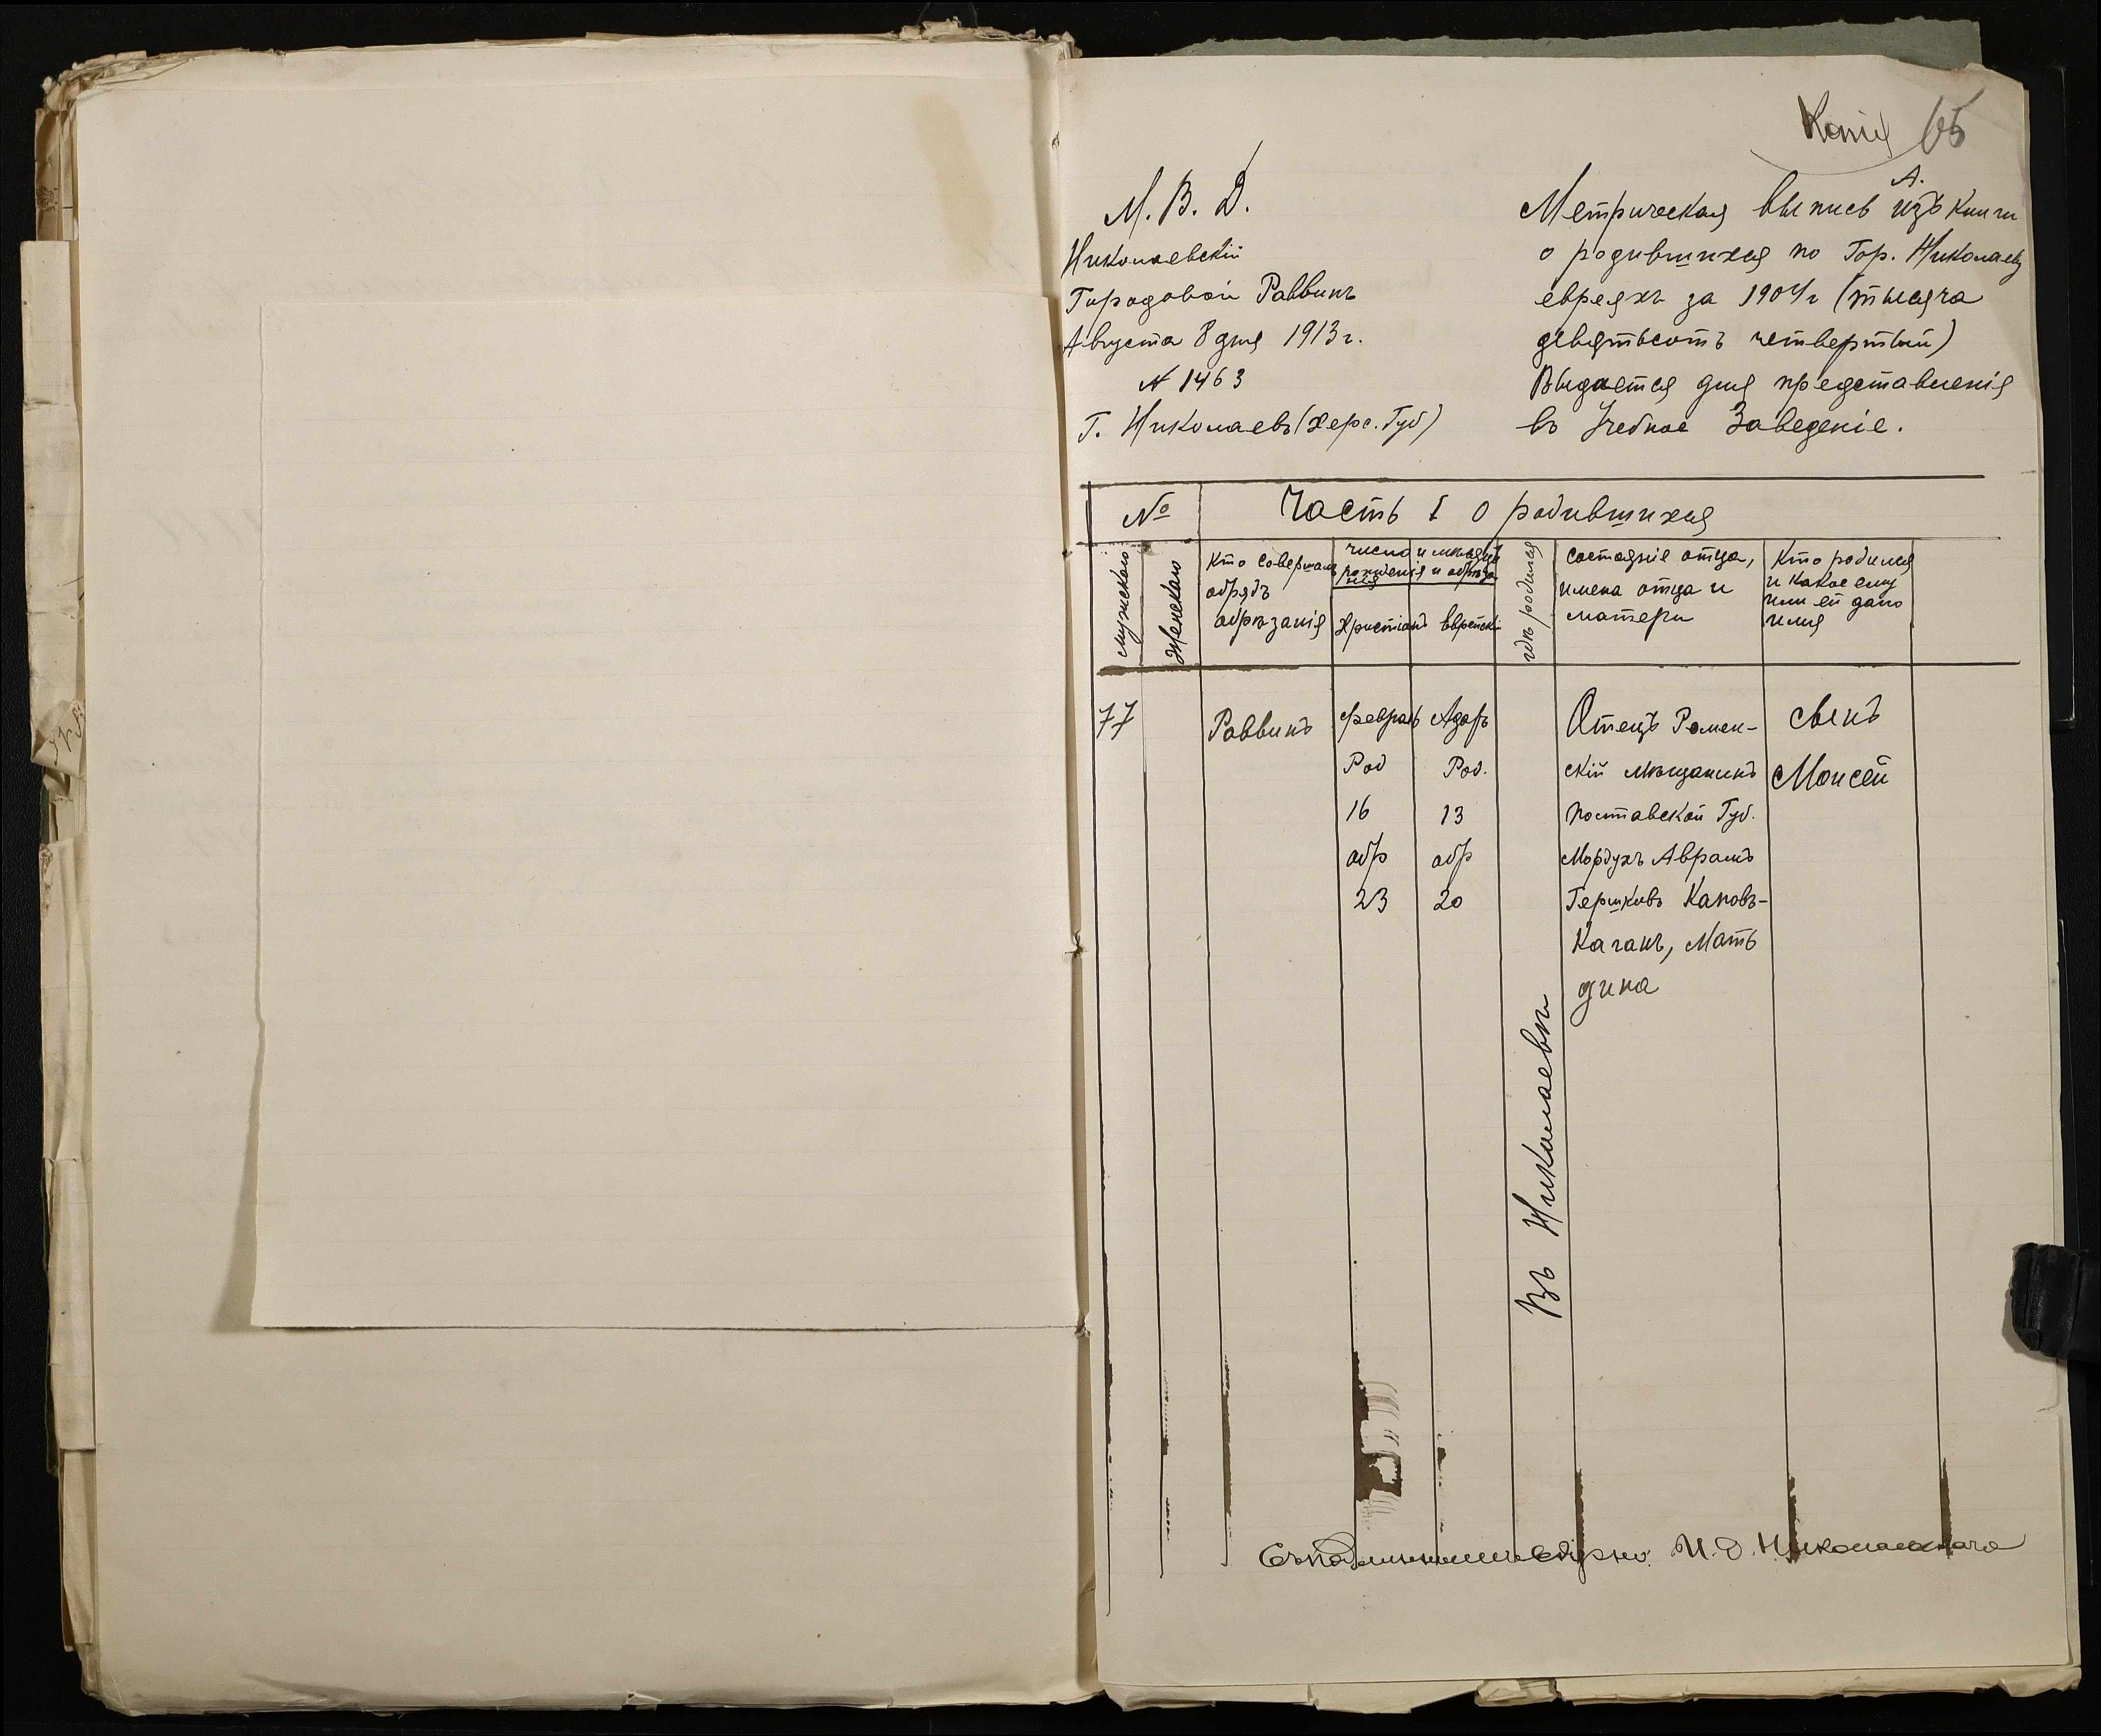 Копія 65
М. В. Д.
Николаевскій
Городовой Раввинъ
Августа 8 дня 1913 г.
№ 1463
Г. Николаевъ (Херс. Губ)
А.
Метрическая выпись изъ книги
о родившихся по Гор. Николаеву
евреяхъ за 1904 г (тысяча
девятьсотъ четвертый)
Выдается для представленія
въ Учебное Заведеніе.
№ Часть I о родившихся
мужскаго
Женскаго
Кто совершалъ
обрядъ
обрѣзанія
число и мѣсяцъ
рожденія и обрѣза
нія
Христіанс Еврейскі
гдѣ родился
состояніе отца,
имена отца и
матери
Кто родился
и какое ему
или ей дано
имя
77
Раввинъ
февраль
Род
16
обр
23
Адаръ
Род.
13
обр
20
Въ Николаевѣ
Отецъ Ромен-
скій мѣщанинъ
Полтавской Губ.
Мордухъ Аврамъ
Гершковъ Кановъ-
Каганъ, Мать
Дина
сынъ
Моисей
Съ подлиннымъ вѣрно. И. Д. Николаевскаго